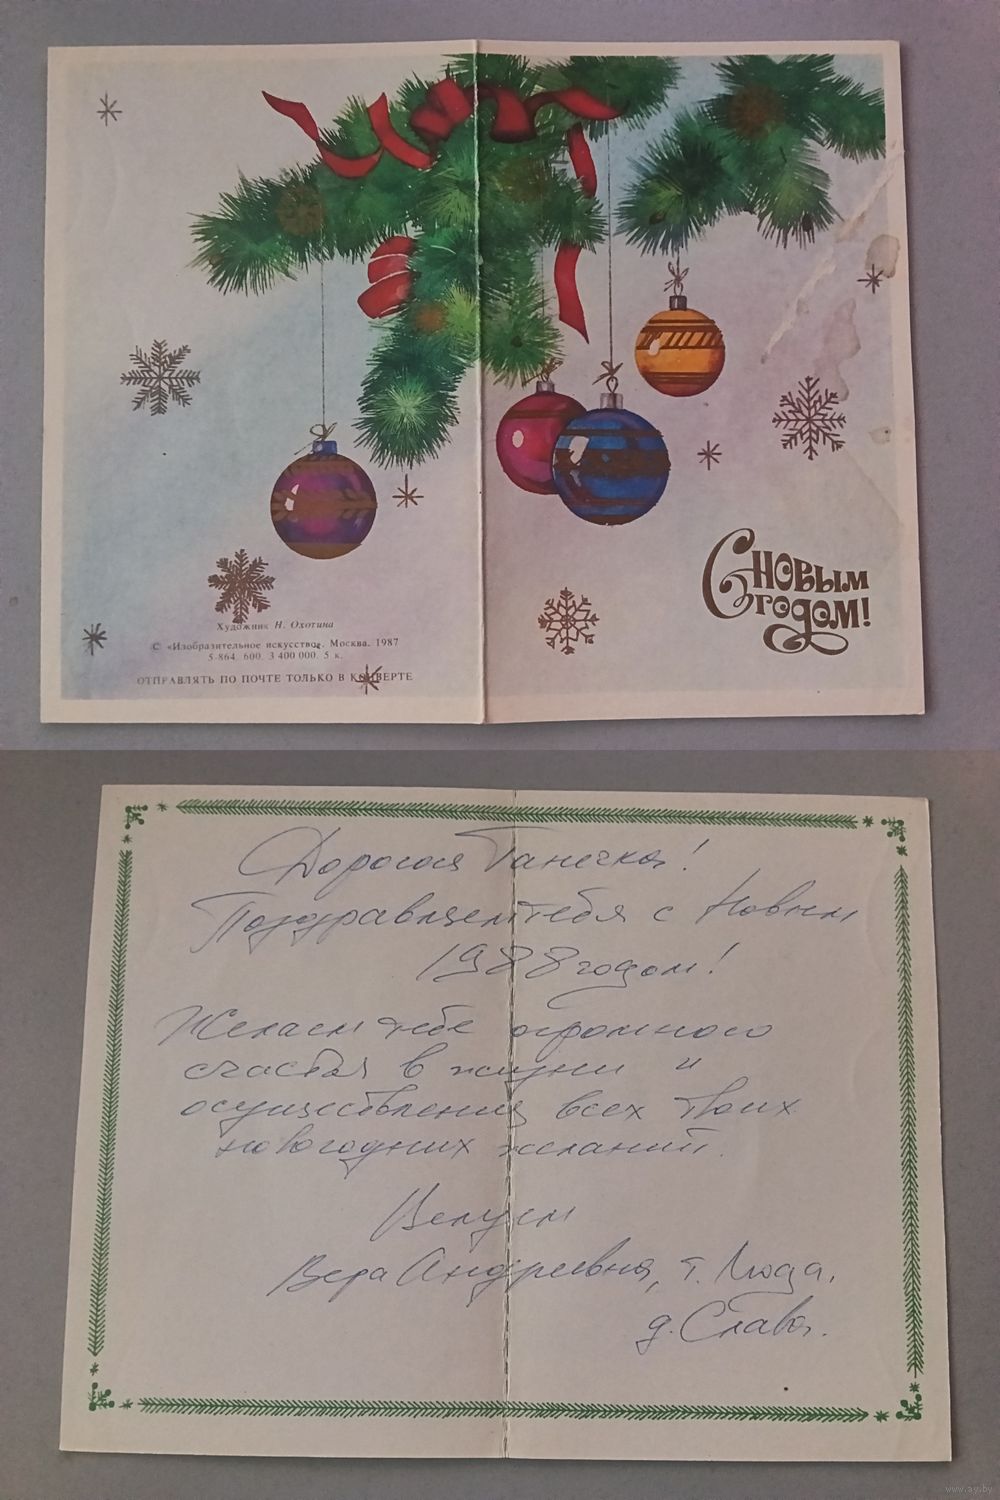 С новым
годом!
Художник Н. Охотина
© «Изобразительное искусство». Москва. 1987
5-864. 600. 3 400 000. 5 к.
ОТПРАВЛЯТЬ ПО ПОЧТЕ ТОЛЬКО В КОНВЕРТЕ
Дорогая Танечка!
Поздравляем тебя с Новым
1988 годом!
Желаем тебе огромного
счастья в жизни и
осуществления всех твоих
новогодних желаний.
Целуем
Вера Андреевна, т. Люда,
д. Слава.
www.ay.by